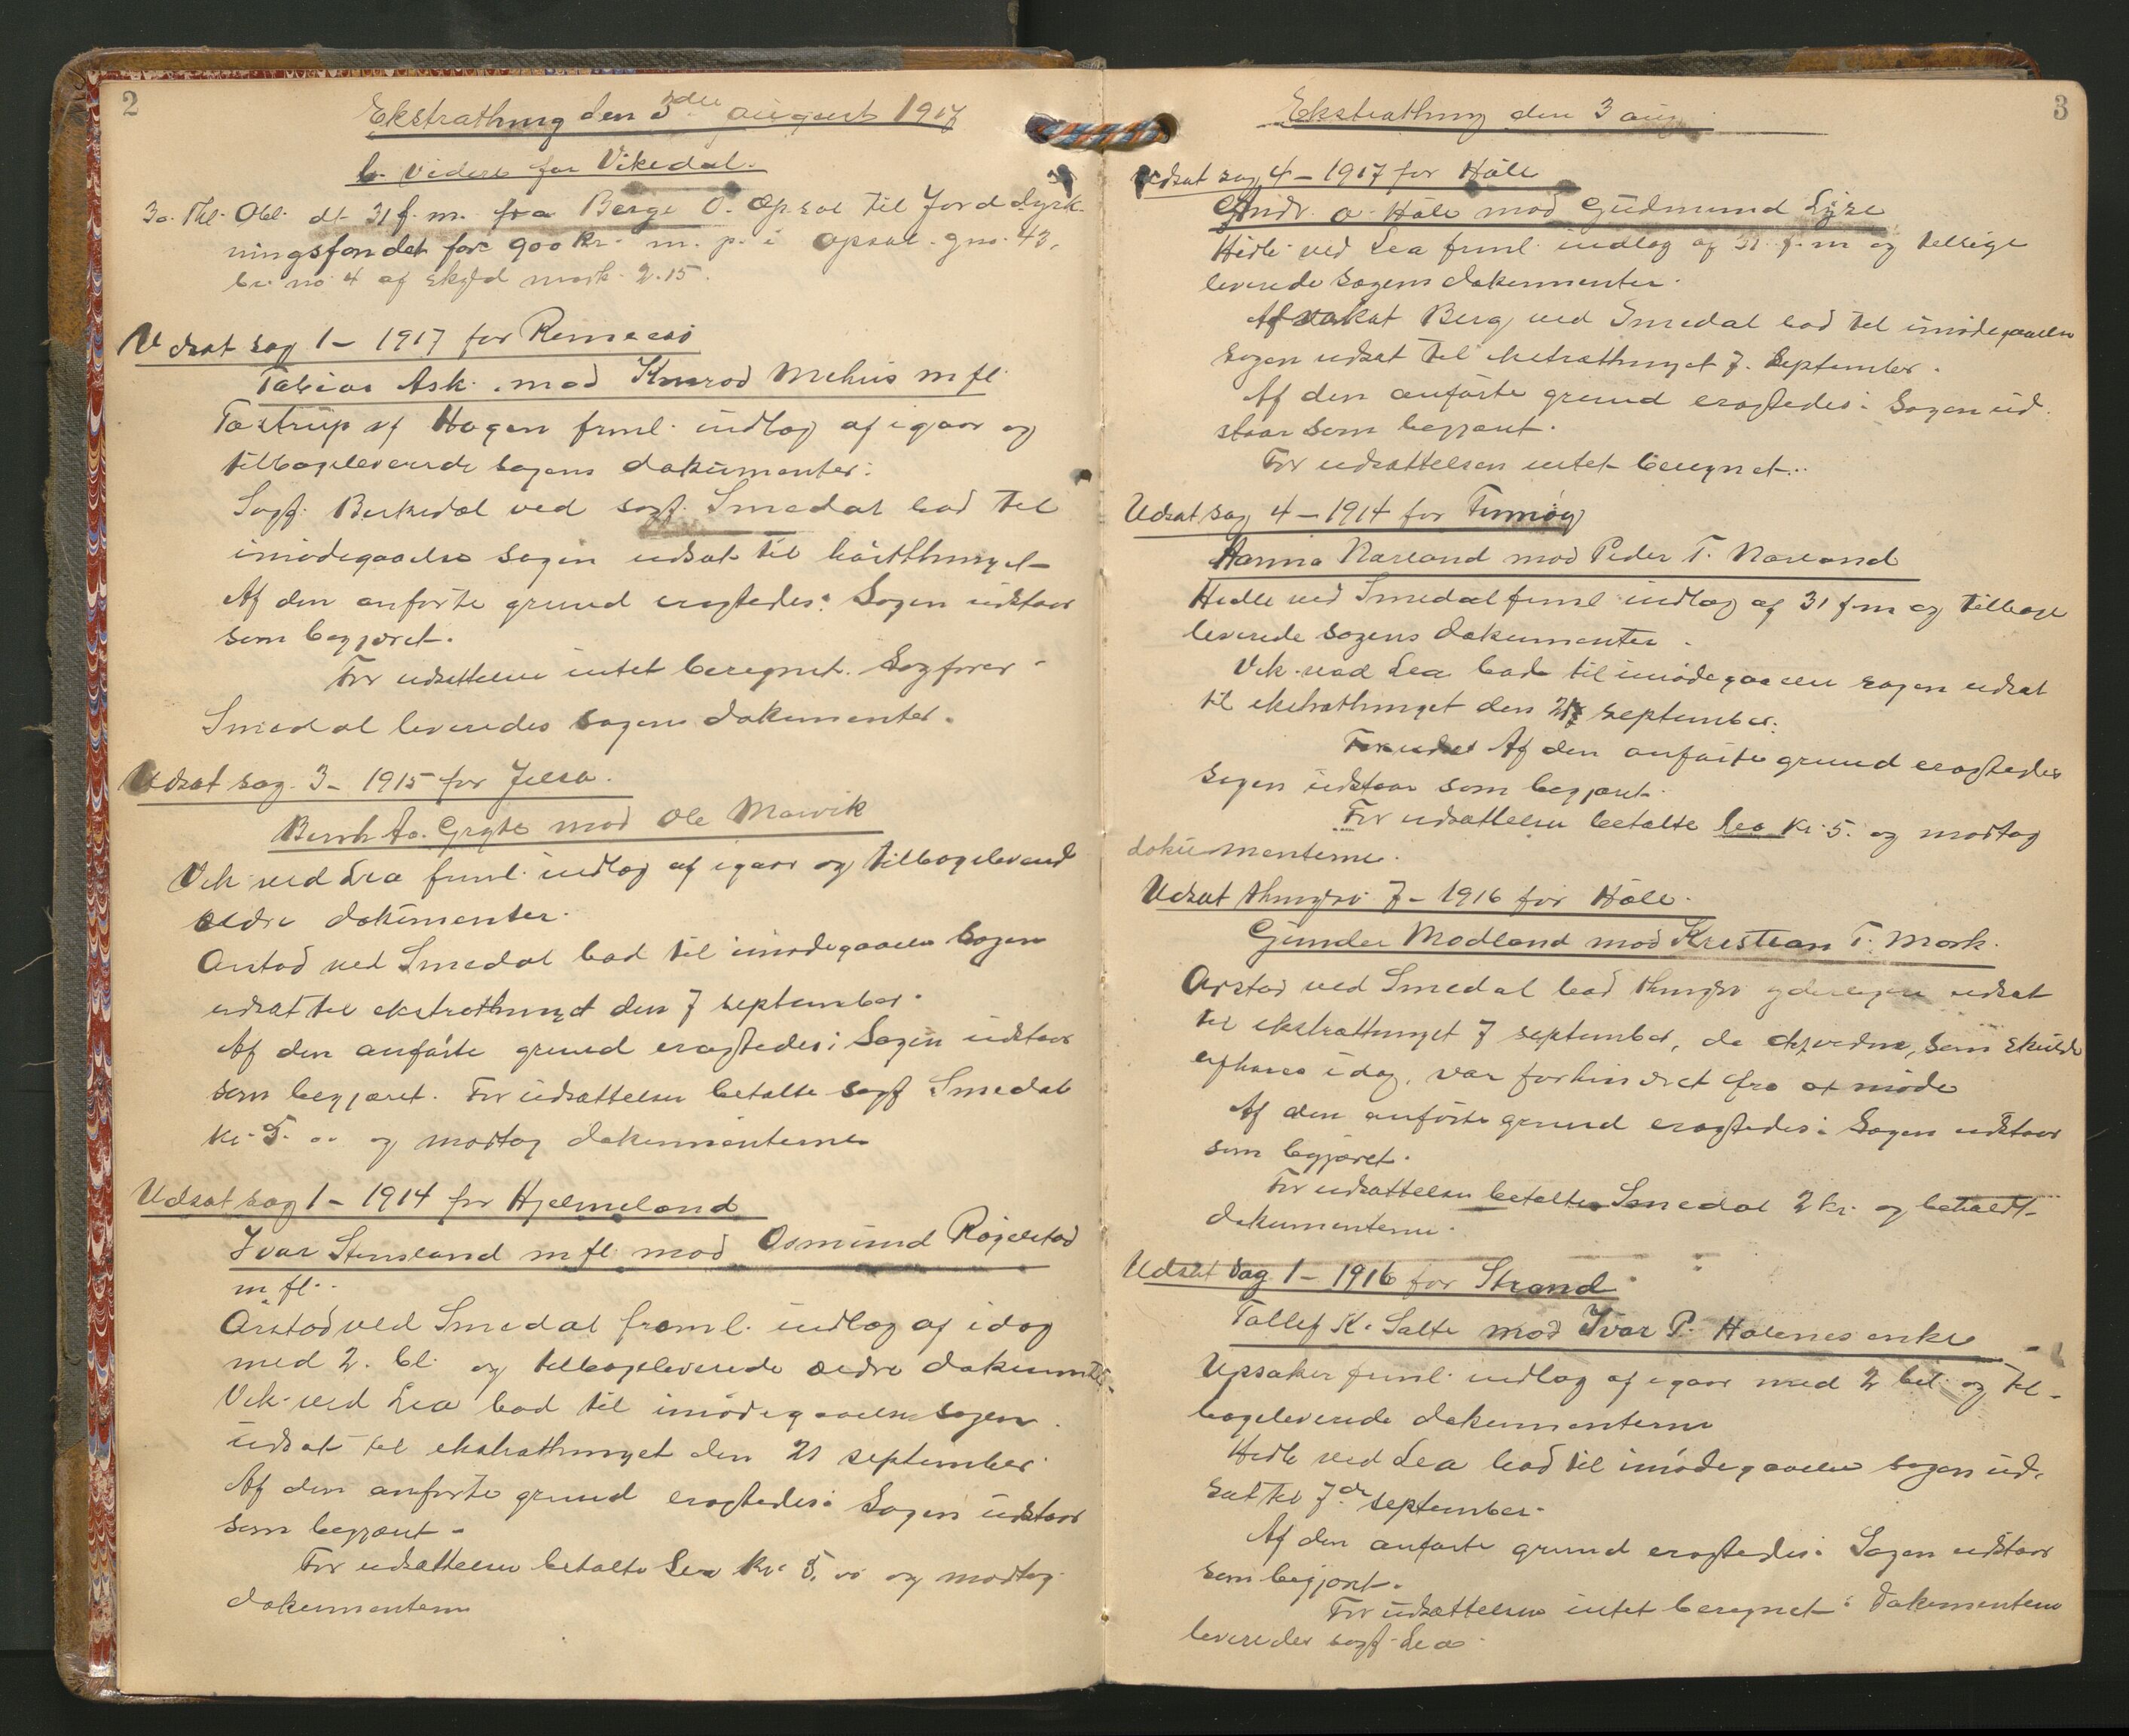 2
Ekstrathing den 3die august 1917
b. videre for Vikedal.
30. Thl. Obl. dt. 31 f.m. fra Berge O. Opsal til Jorddyrk-
ningsfondet for 900 kr. m. p. i Opsal gno. 43,
br. no 4 af skyld mark 2.15.
Udsat sag 1 - 1917 for Rennesø
Tobias Ask mod Knud Mehus m fl
Tastrup v/ Hagen freml. indlæg af igaar og
tilbageleverede sagens dokumenter.
Sagf. Berkedal ved sagf. Smedal bad til
imødegaaelse sagen udsat til høstthinget
Af den anførte grund eragtedes: Sagen udstaar
som begjæret.
For udsættelsen intet beregnet. Sagfører
Smedal leveredes sagens dokumenter.
Udsat sag 3 - 1915 for Jelsa.
Aa. Gryte mod Ole Marvik
Vik ved Lea freml. indlæg af igaar og tilbageleverede
ældre dokumenter.
Arstad ved Smedal bad til imødegaaelse sagen
udsat til ekstrathinget den 7 september.
Af den anførte grund eragtedes: Sagen udstaar
som begjæret. For udsættelsen betalte sagf Smedal
kr. 5.00 og modtog dokumenterne
Udsat sag 1 - 1914 for Hjelmeland
Ivar Stensland m fl. mod Osmund Røgelstad
m fl.
Arstad ved Smedal freml. indlæg af idag
med 2. bl. og tilbageleverede ældre dokumnter.
Vik ved Lea bad til imødegaaelse sagen
udsat til ekstrathinget den 21 september
Af den anførte grund eragtedes: Sagen udstaar
som begjæret.
For udsættelsen betalte Lea kr. 5.00 og modtog
dokumenterne
3
Ekstrathing den 3 aug.
Udsat sag 4 - 1917 for Høle
Andr. A. Høle mod Gudmund Lyse
Hidle ved Lea freml. indlæg af 31 f.m og
leverede sagens dokumenter.
Advokat Berg ved Smedal bad til imødegaaelse
sagen udsat til ekstrathinget 7. september.
Af den anførte grund eragtedes: Sagen ud-
staar som begjæret.
For udsættelsen intet beregnet.
Udsat sag 4 - 1914 for Finnøy
Hanna Narland mod Peder T. Narland
Hidle ved Smedal freml. indlæg af 31 f.m og tilbage
leverede sagens dokumenter.
Vik ved Lea bad til imødegaaelse sagen udsat
til ekstrathinget den 21 september.
For uds Af den anførte grund eragtedes
Sagen udstaar som begjæret.
For udsættelsen betalte Lea kr. 5. og modtog
dokumenterne.
Udsat thingsv. 7 - 1916 for Høle.
Gunder Modland mod Kristian T. Mork.
Arstad ved Smedal bad thingsv yderligere udsat
til ekstratthinget 7 september, da vidne, som skulde
afhøres idag, var forhindret fra at møde
Af den anførte grund eragtedes: Sagen udstaar
som begjæret.
For udsættelsen betalte Smedal 2 kr. og beholdt
dokumenterne.
Udsat sag 1 - 1916 for Strand
Tollef K. Salte mod Ivar P. Holenes enke
Upsaker freml. indlæg af igaar med 2 bil. og til-
bageleverede dokumenterne
Hidle ved Lea bad til imødegaaelse sagen ud-
sat til 7de september.
Af den anførte grund eragtedes: Sagen udstaar
som begjæret.
For udsættelsen intet beregnet. Dokumenterne
leveredes sagf. Lea.